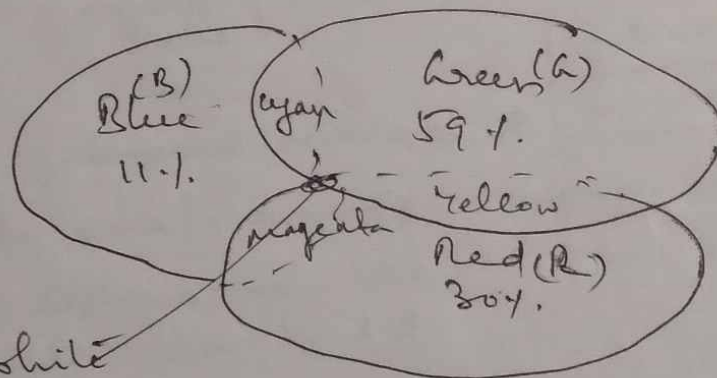 (B)
Blue
11%
cyan
Green (G)
59%.
Yellow
magenta
Red (R)
30%.
white